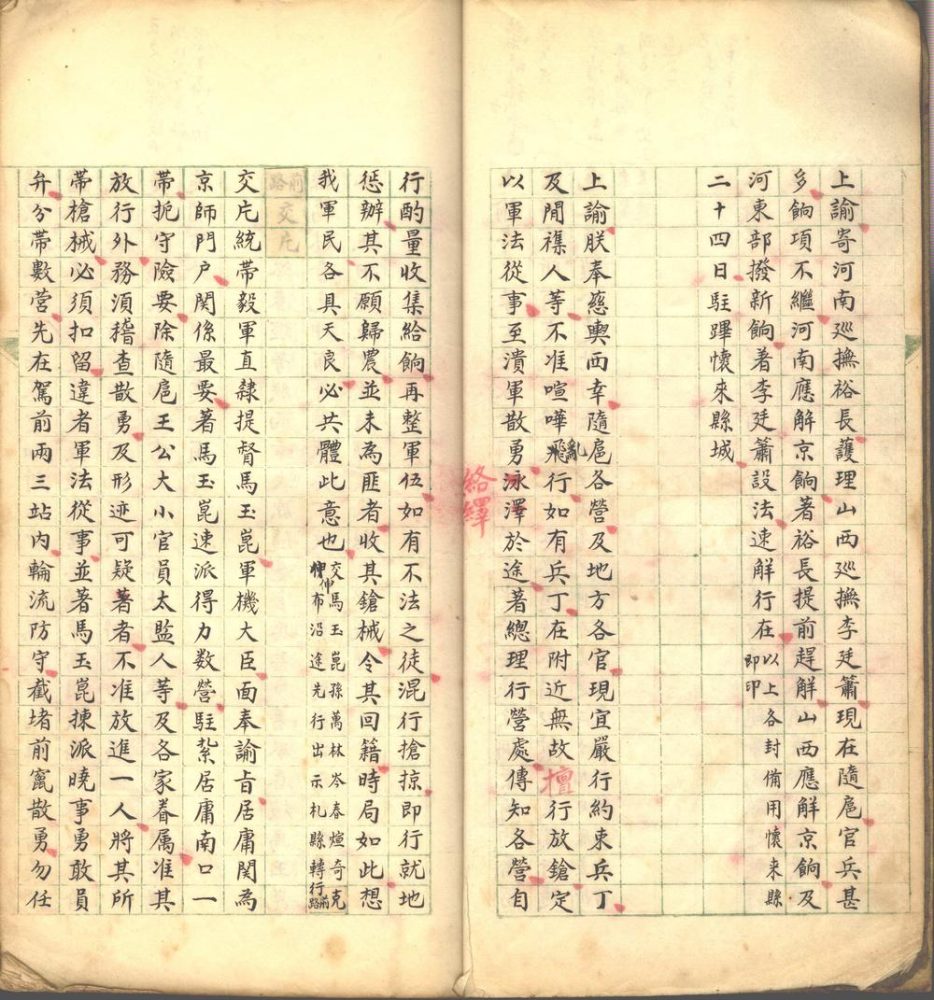 上諭寄河南巡撫裕長護理山西巡撫李廷簫現在隨扈官兵甚
多餉項不繼河南應解京餉著裕長提前趕解山西應解京餉及
河東部撥新餉著李廷簫設法速解行在以上各封備用懷来縣即印
二十四日駐蹕懷来縣城
上諭朕奉慈輿西幸隨扈各營及地方各官現宜嚴行約束兵丁
及閒襍人等不准喧嘩飛亂行如有兵丁在附近無故擅行放鎗定
以軍法從事至潰軍散勇泳澤於途著總理行營處傳知各營自
絡繹
行酌量收集給餉再整軍伍如有不法之徒混行搶掠即行就地
懲辦其不願歸農並未為匪者收其鎗械令其回籍時局如此想
我軍民各具天良必共體此意也交馬玉崑孫萬林岑春煊奇克伸布沿途先行出示札縣轉行兩路
前路
交片
交片統帶毅軍直隸提督馬玉崑軍機大臣面奉諭旨居庸関為
京師門户関係最要著馬玉崑速派得力数營駐紮居庸南口一
帶扼守險要除隨扈王公大小官員太監人等及各家眷属准其
放行外務須稽查散勇及形迹可疑著者不准放進一人將其所
帶槍械必須扣留違者軍法從事並著馬玉崑揀派曉事勇敢員
弁分帶數營先在駕前兩三站内輪流防守截堵前竄散勇勿任